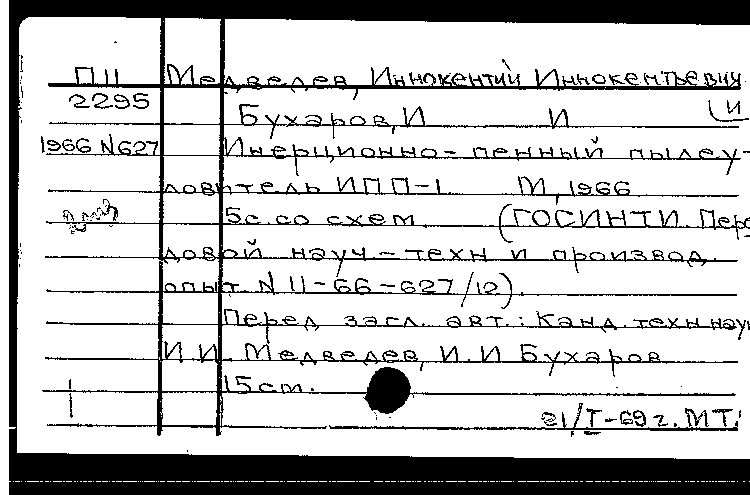 П11 Медведев, Иннокентий Иннокентьевич
2295 и
Бухаров, И И
1966 N627 Инерционно-пенный пылеу-
ловитель ИПП-1 М, 1966
5с. со схем. (ГОСИНТИ. Пере
довой науч-техн и производ.
опыт. N 11-66-627/12).
Перед загл. авт.: Канд. техн наук
И.И. Медведев, И.И Бухаров
15 см.
21/I-69 г. МТ.